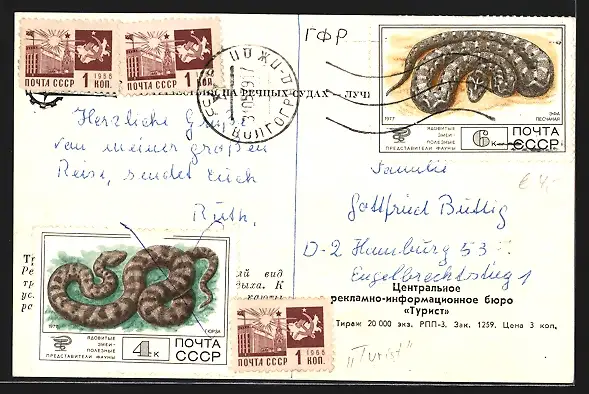 ПОЧТА СССР 1 1966 КОП.
ПОЧТА СССР 1 1966 КОП.
ГФР
ВОЛГОГР
НА РЕЧНЫХ СУДАХ — ЛУЧ
1977
ЭФА ПЕСЧАНАЯ
ЯДОВИТЫЕ
ЗМЕИ-
ПОЛЕЗНЫЕ
ПРЕДСТАВИТЕЛИ ФАУНЫ
6 К
ПОЧТА
СССР
Herzliche Grüße
von meiner großen
Reise, sendet Euch
Ruth.
Familie
Gottfried Büttig
D-2 Hamburg 53
Engelbrechtsweg 1
€ 4,-
1977
ГЮРЗА
ЯДОВИТЫЕ
ЗМЕИ-
ПОЛЕЗНЫЕ
ПРЕДСТАВИТЕЛИ ФАУНЫ
4 К
ПОЧТА
СССР
ый вид
дыха. К
ПОЧТА СССР 1 1966 КОП.
Центральное
рекламно-информационное бюро
«Турист»
Тираж 20 000 экз. РПП-3. Зак. 1259. Цена 3 коп.
„Turist"